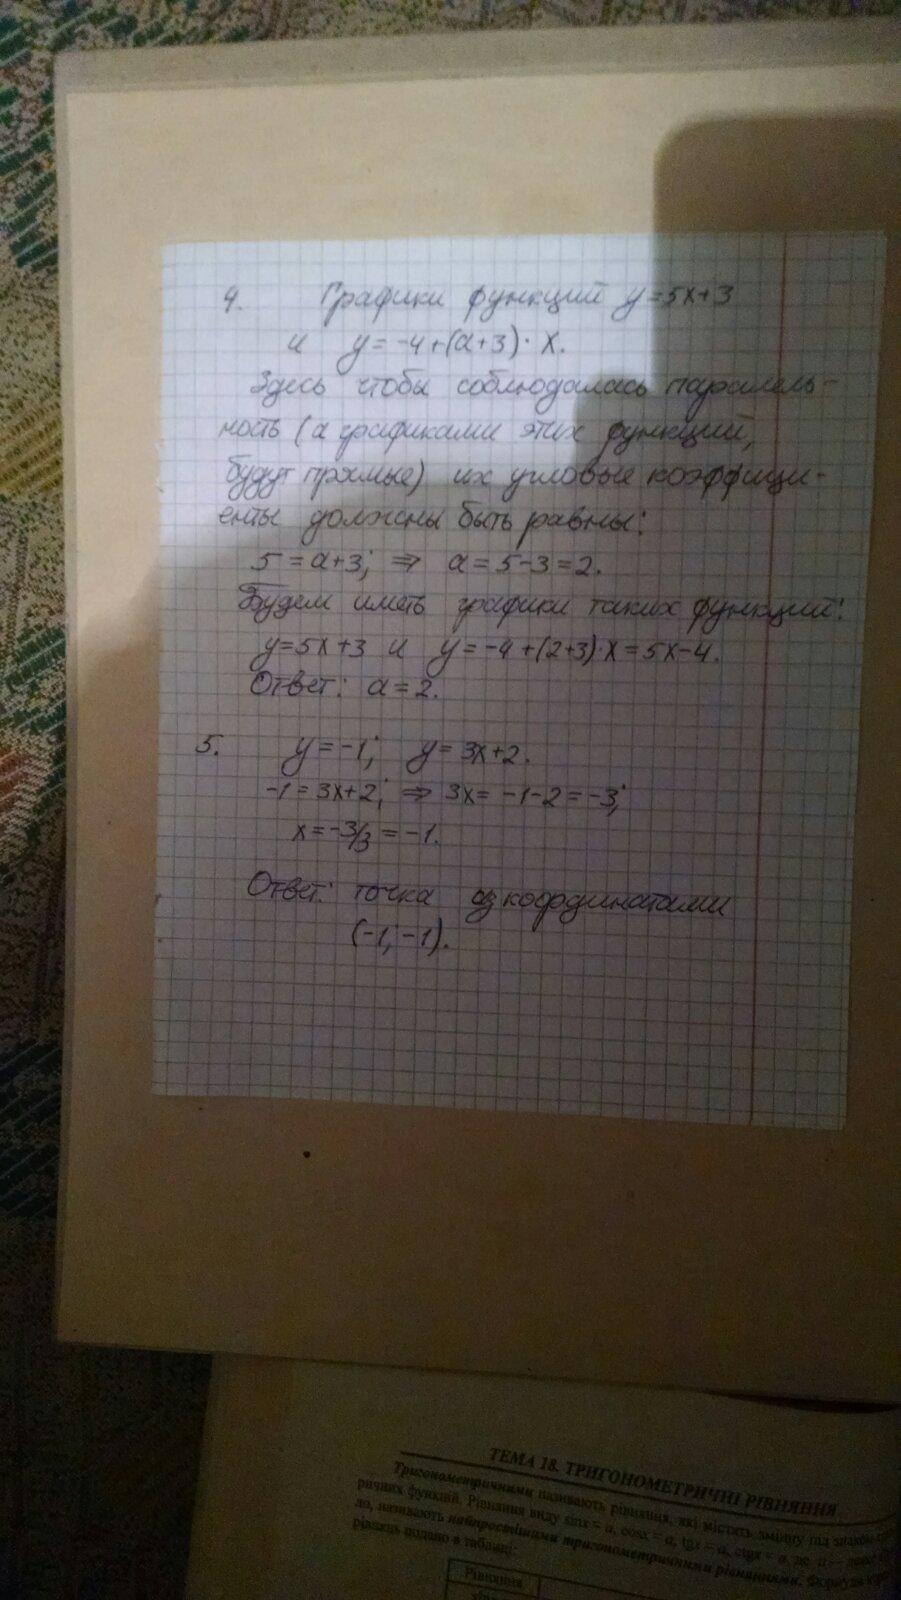 4. Графики функций y=5x+3
и y=-4+(a+3)·x.
Здесь чтобы соблюдалась паралель-
ность (а графиками этих функций,
будут прямые) их угловые коэффици-
енты должны быть равны:
5=a+3; ⇒ a=5-3=2.
Будем иметь графики таких функций:
y=5x+3 и y=-4+(2+3)·x=5x-4.
Ответ: a=2.
5. y=-1; y=3x+2.
-1=3x+2; ⇒ 3x=-1-2=-3;
x=-3/3=-1.
Ответ: точка с координатами
(-1; -1).
ТЕМА 18. ТРИГОНОМЕТРИЧНІ РІВНЯННЯ
Тригонометричними називають рівняння, які містять змінну під знаком
ричних функцій. Рівняння виду sinx = a, cosx = a, tgx = a, ctgx = a, де a —
ло, називають найпростішими тригонометричними рівняннями. Формули
рівнянь подано в таблиці:
Рівняння